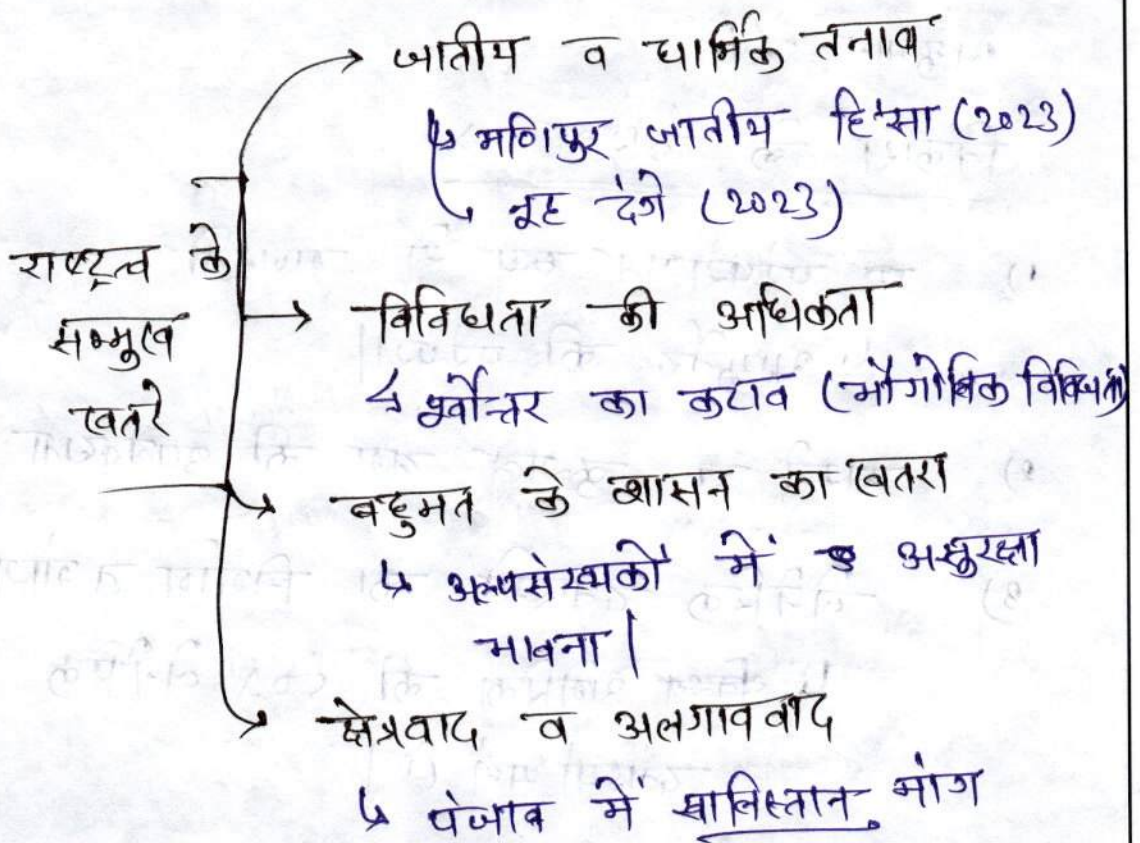 राष्ट्रत्व के
सम्मुख
खतरे
→ जातीय व धार्मिक तनाव
↳ मणिपुर जातीय हिंसा (2023)
↳ नूह दंगे (2023)
→ विविधता की अधिकता
↳ पूर्वोत्तर का कटाव (भौगोलिक विविधता)
→ बहुमत के शासन का खतरा
↳ अल्पसंख्यकों में असुरक्षा
भावना |
→ क्षेत्रवाद व अलगाववाद
↳ पंजाब में खालिस्तान मांग